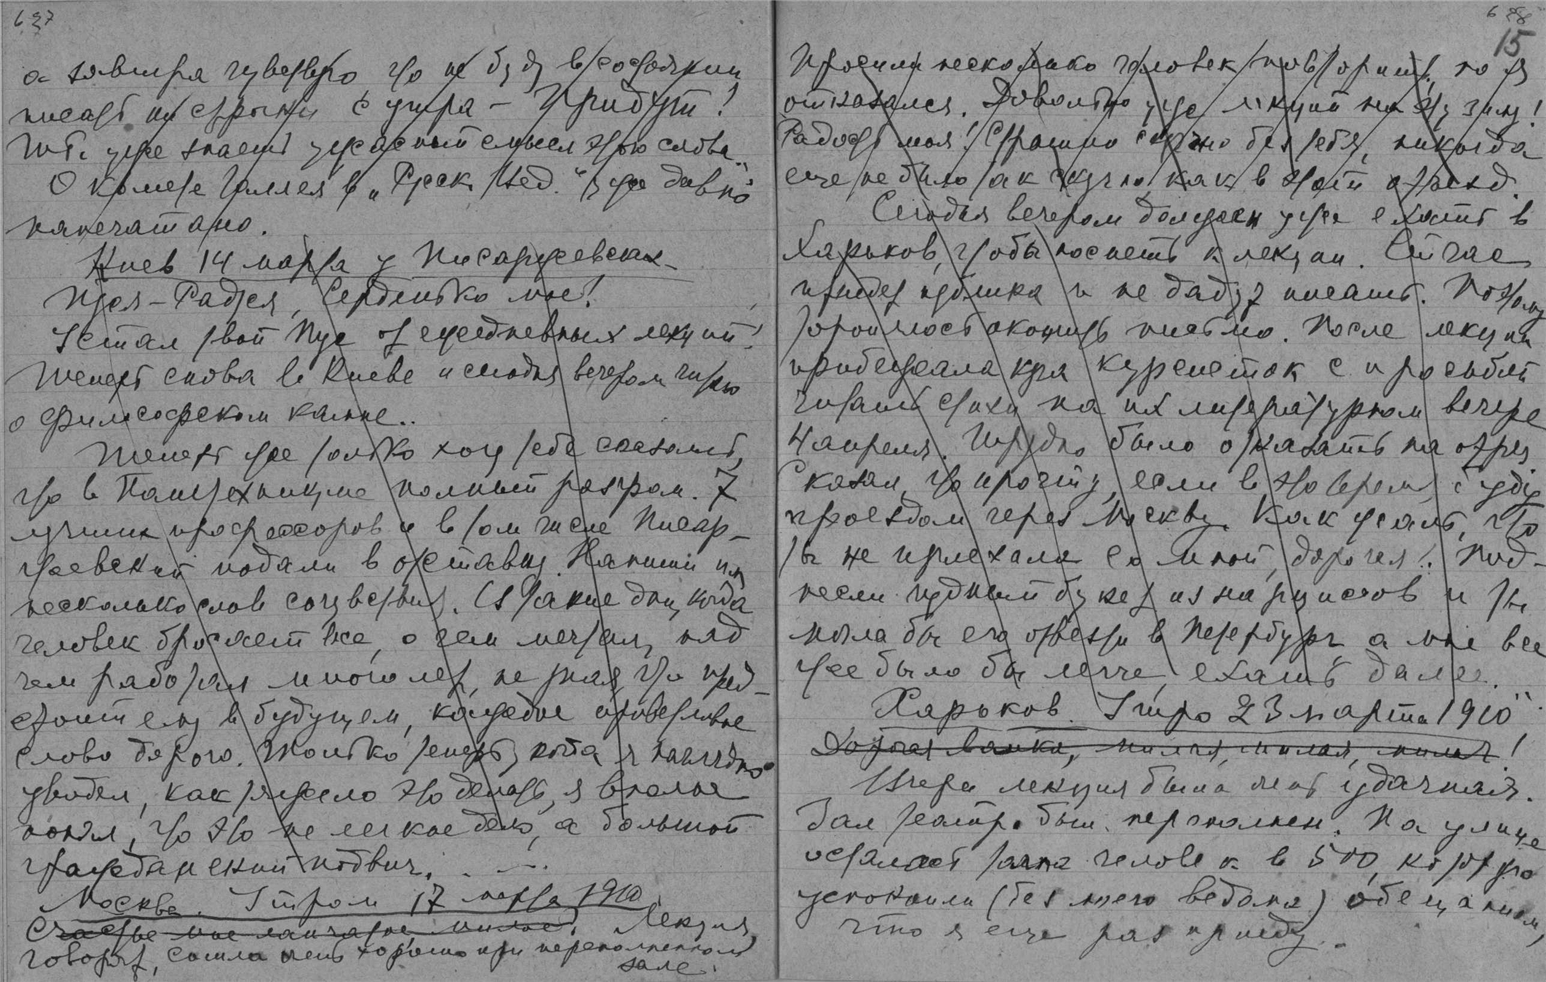 637
а завтра чувствую что не буду в состоянии
писать ни строки с утра – Придут!
Ты уже знаешь ужасный смысл этого слова.
О комете Галлея в „Русск. Вед." уже давно
напечатано.
Киев 14 марта у Писаржевских
Пуся-Радуся, Сердечко мое!
Устал твой Пус от ежедневных лекций!
Теперь снова в Киеве и сегодня вечером читаю
о философском камне..
Теперь же только хочу тебе сказать,
что в Политехникуме полный разгром. 7
лучших профессоров и в том числе Писар-
жевский подали в отставку. Напиши им
несколько слов сочувствия. В такие дни, когда
человек бросает все, о чем мечтал, над
чем работал много лет, не зная что пред-
стоит ему в будущем, каждое приветливое
слово дорого. Только теперь, когда я наглядно
увидел, как тяжело это делать, я вполне
понял, что это не легкое дело, а большой
гражданский подвиг.
Москва. Утром 17 марта 1910
Счастье мое милое! Лекция,
говорят, сошла очень хорошо при переполненном
зале.
638
15
Просили несколько человек повторить, но я
отказался. Довольно уже лекций на эту зиму!
Радость моя! Страшно скучно без тебя, никогда
еще не было так скучно как в этот отъезд.
Сегодня вечером должен уже ехать в
Харьков, чтобы поспеть к лекции. Сейчас
придет публика и не дадут писать. Поэтому
тороплюсь окончить письмо. После лекции
прибежала куча курсисток с просьбой
читать стихи на их литературном вечере
4 апреля. Трудно было отказать наотрез
Сказал, что прочту, если в это время буду
проездом через Москву. Как жаль, что
ты не приехала со мной, дорогая!. Под-
несли чудный букет из нарциссов и ты
могла бы его отвезти в Петербург а мне все
же было бы легче ехать далее.
Харьков. Утро 23 марта 1910
Дорогая милая, милая, милая!
Вчера лекция была очень удачная.
Зал театра был переполнен. На улице
осталась толпа человек в 500, которую
успокоили (без моего ведома) обещанием,
что я еще раз приеду.